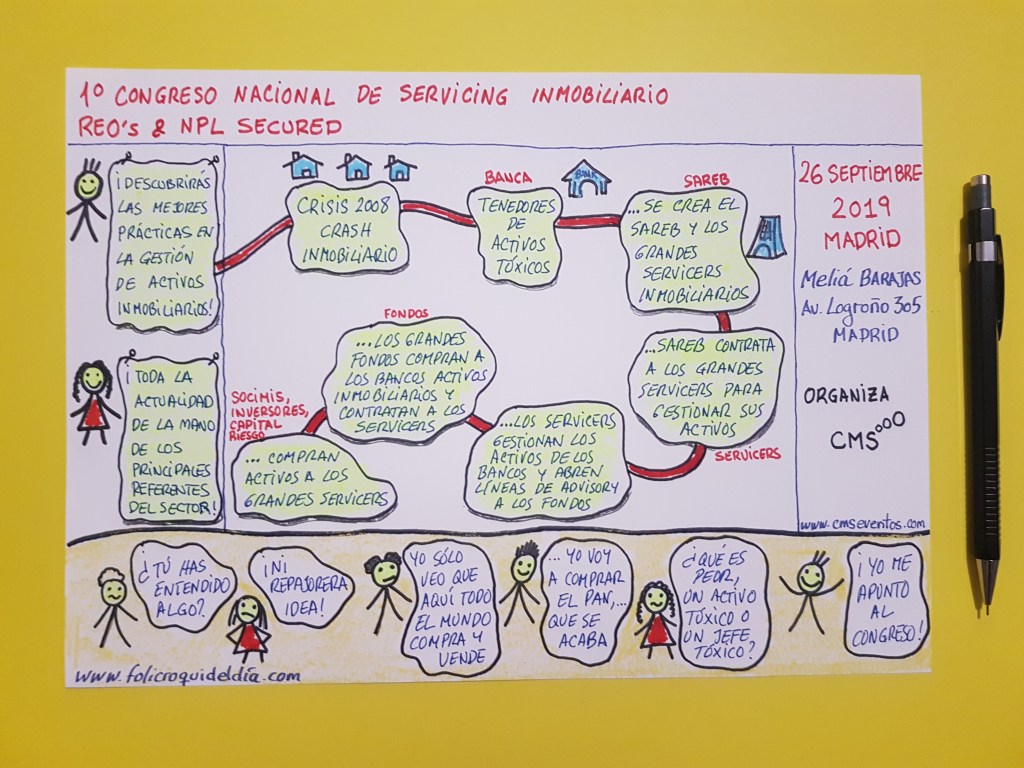 1º CONGRESO NACIONAL DE SERVICING INMOBILIARIO
REO's & NPL SECURED
¡DESCUBRIRÁS
LAS MEJORES
PRÁCTICAS EN
LA GESTIÓN
DE ACTIVOS
INMOBILIARIOS!
¡TODA LA
ACTUALIDAD
DE LA MANO
DE LOS
PRINCIPALES
REFERENTES
DEL SECTOR!
CRISIS 2008
CRASH
INMOBILIARIO
BANCA
BANK
TENEDORES
DE
ACTIVOS
TÓXICOS
SAREB
...SE CREA EL
SAREB Y LOS
GRANDES
SERVICERS
INMOBILIARIOS
...SAREB CONTRATA
A LOS GRANDES
SERVICERS PARA
GESTIONAR SUS
ACTIVOS
SERVICERS
...LOS SERVICERS
GESTIONAN LOS
ACTIVOS DE LOS
BANCOS Y ABREN
LÍNEAS DE ADVISORY
A LOS FONDOS
FONDOS
...LOS GRANDES
FONDOS COMPRAN A
LOS BANCOS ACTIVOS
INMOBILIARIOS Y
CONTRATAN A LOS
SERVICERS
SOCIMIS,
INVERSORES,
CAPITAL
RIESGO
... COMPRAN
ACTIVOS A LOS
GRANDES SERVICERS
26 SEPTIEMBRE
2019
MADRID
Meliá BARAJAS
Av. Logroño 305
MADRID
ORGANIZA
CMSooo
www.cmseventos.com
¿TÚ HAS
ENTENDIDO
ALGO?
¡NI
REPAJORERA
IDEA!
YO SÓLO
VEO QUE
AQUÍ TODO
EL MUNDO
COMPRA Y
VENDE
... YO VOY
A COMPRAR
EL PAN,...
QUE SE
ACABA
¿QUÉ ES
PEOR,
UN ACTIVO
TÓXICO O
UN JEFE
TÓXICO?
¡YO ME
APUNTO
AL
CONGRESO!
www.folicroquideldía.com